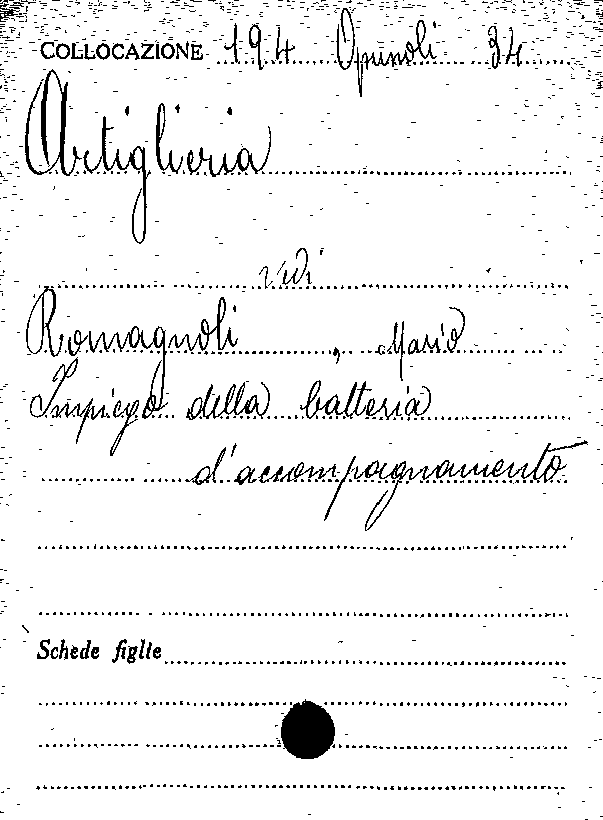 COLLOCAZIONE 194 Opuscoli 34
Artiglieria
vedi
Romagnoli, Mario
Impiego della batteria
d'accompagnamento
Schede figlie